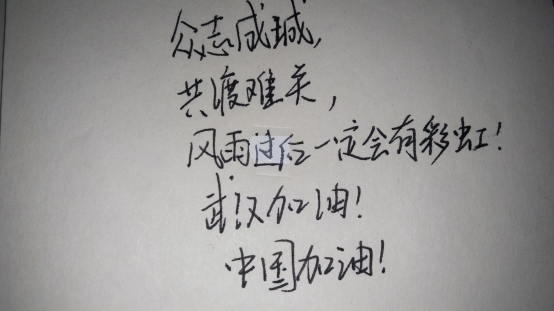 众志成城,
共渡难关,
风雨过后一定会有彩虹!
武汉加油!
中国加油!